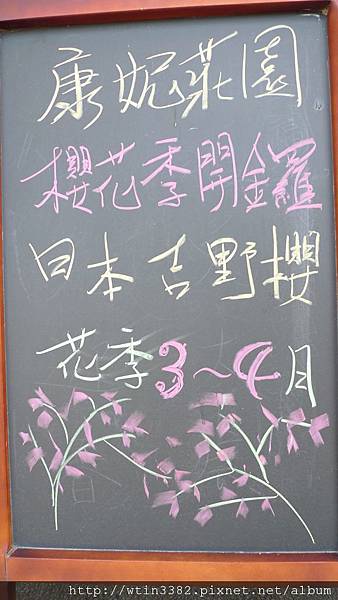 康妮莊園
櫻花季開鑼
日本吉野櫻
花季3~4月
http://wtin3382.pixnet.net/album